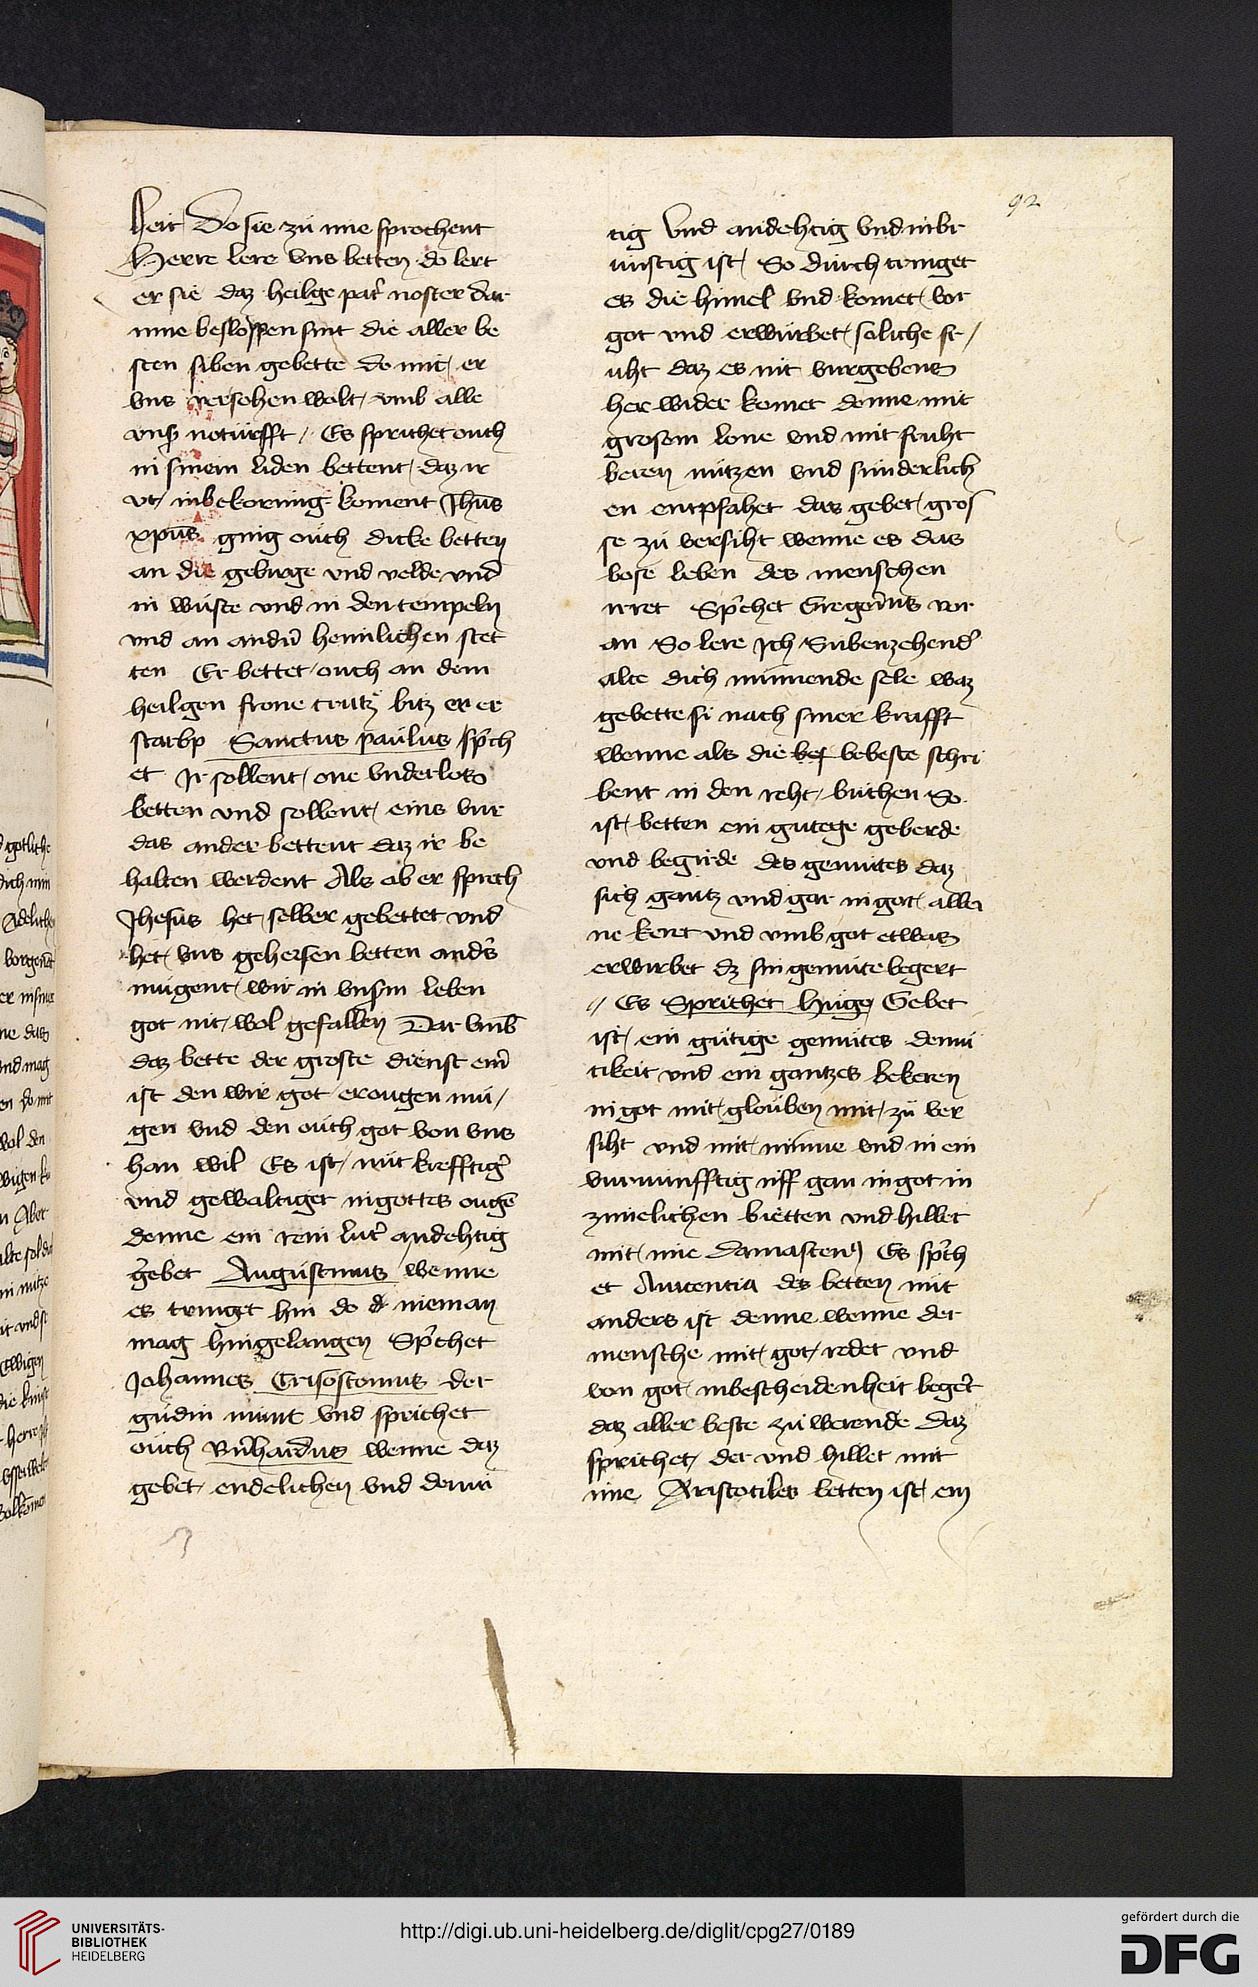 92
heit Do sie zü ime sprochent
Herre lere vns betten do lert
er sie daz heilge pat̄ noster dar
inne beslossen sint die aller be
sten siben gebette do mit er
vns versehen wolt vmb alle
vnß notürfft Es sprichet ouch
in sinem liden bettent daz ir
üt in bekorung koment Jhūs
xp̄us ging oüch dicke betten
an die gebirge vnd velde vnd
in wüste vnd in den tempeln
vnd an andn̄ heimlichen stet
ten Er bettet ouch an dem
heilgen frone crütz bitz er er
starbp Sanctus paulus sp̄ch
et Ir sollent one vnderlos
betten vnd sollent eins vur
das ander bettent daz ir be
halten werdent Als ob er sprech
Jhesus het selber gebettet vnd
het vns geheissen betten and̄s
mügent wir in vnsm leben
got nit wol gefallen Dar vmb
daz bette der groste dienst ein
ist den wir got erougen mü
gen vnd den oüch got von vns
han wil Es ist nüt krefftiḡ
vnd gewaltiger in gottes ougē
denne ein rein lut̄ andehtig
gebet Augustinus wenne
es tringet hin do d nieman
mag hin gelangen Sp̄chet
Johannes Crisostomus der
guldin munt vnd sprichet
oüch Bn̄hardus wenne daz
gebet endelichen vnd demü
tig vnd andehtig vnd inbr
ünstig ist So dürch tringet
es die himel vnd komet vor
got vnd erwürbet soliche fr
uht daz es nit vurgebens
her wider komet denne mit
grosem lone vnd mit fruht
beren nützen vnd sunderlich
en entpfahet das gebet gros
se zü versiht wenne es das
bose leben des menschen
irret Sp̄chet Gregorius vor
an So lere Ich Subenzehend̄
alte dich minnende sele waz
gebette si nach siner krafft
wenne als die bes bebeste schri
bent in den reht büchen So
ist betten ein gütege geberde
vnd begirde des gemütes daz
sich gantz vnd gar in got allei
ne keret vnd vmb got etwas
erwirbet dz sin gemüte begert
Es Sprichet Hugo Gebet
ist ein gütige gemütes demü
tikeit vnd ein gantzes bekeren
in got mit glouben mit zü ver
siht vnd mit minne vnd in ein
vurnünfftig uff gan in got in
zimelichen bietten vnd hillet
mit ime Damascen9 Es sp̄ch
et Auicentia des betten nüt
anders ist denne wenne der
mensche mit got redet vnd
von got in bescheidenheit begert
daz aller beste zü werende Daz
sprichet der vnd hillet mit
ime Aristotiles betten ist ein
UNIVERSITÄTS-
BIBLIOTHEK
HEIDELBERG
http://digi.ub.uni-heidelberg.de/diglit/cpg27/0189
gefördert durch die
DFG